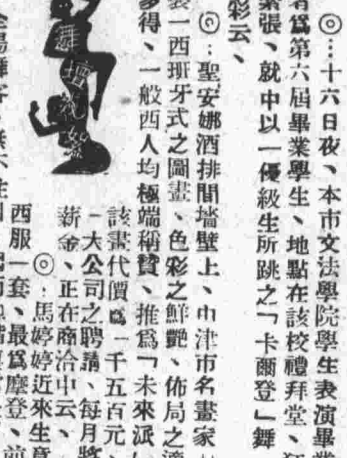 ◎…十六日夜、本市文法學院學生表演畢業
者爲第六屆畢業學生、地點在該校禮拜堂、
緊張、就中以一優級生所跳之「卡爾登」舞
彩云、
◎：聖安娜酒排間墻壁上、由津市名畫家
裝一西班牙式之圖畫、色彩之鮮艷、佈局之
多得、一般西人均極端稱贊、推爲「未來派
該畫代價爲一千五百元、
一大公司之聘請、每月將
薪金、正在商洽中云、
◎：馬婷婷近來生意
西服一套、最爲摩登、前
舞壇